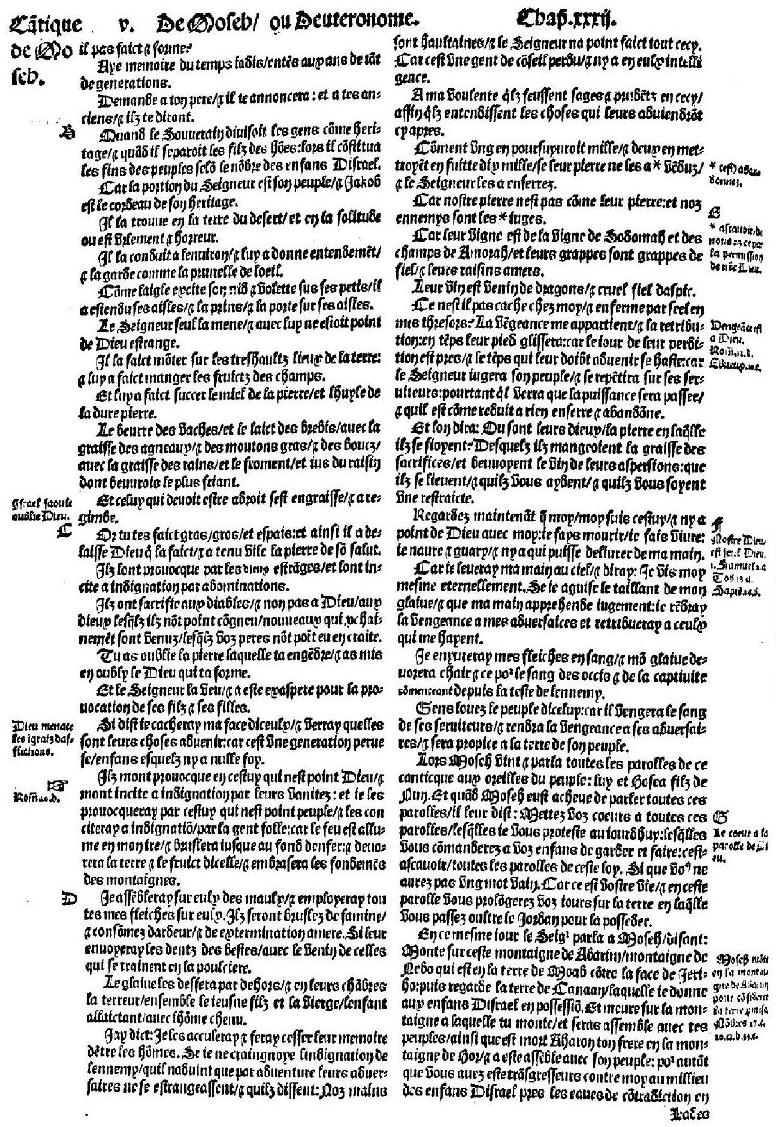 Cãtique v. De Moseh/ ou Deuteronome. Chap.xxxij.
de Mo
seh.
il pas faict ⁊ forme?
Aye memoire du temps iadis/entēs aux ans de tāt
de generations.
Demande a ton pere/⁊ il te annoncera: et a tes an-
ciens/⁊ ilz te diront.
B
Quand le Souuerain diuisoit les gens cōme heri-
tage/⁊ quād il separoit les filz des hōes: lors il cōstitua
les fins des peuples selō le nōbre des enfans Disrael.
Car la portion du Seigneur est son peuple/⁊ Jakob
est le cordeau de son heritage.
Il la trouue en la terre du desert/et en la solitude
ou est vrlement ⁊ horreur.
Il la conduit a lenuiron/⁊ luy a donne entendemēt/
⁊ la garde comme la prunelle de loeil.
Cōme laigle excite son nid/⁊ volette sus ses petis/il
a estendu ses aisles/⁊ la prins/⁊ la porte sur ses aisles.
Le Seigneur seul la mene/⁊ auec luy ne estoit point
de Dieu estrange.
Il la faict mōter sur les treshaultz lieux de la terre:
⁊ luy a faict manger les fruictz des champs.
Et luy a faict succer le miel de la pierre/et lhuyle de
la dure pierre.
Le beurre des vaches/et le laict des brebis/auec la
graisse des agneaux/⁊ des moutons gras/⁊ des boucz/
auec la graisse des rains/et le froment/et ius du raisin
dont beuurois le plus friant.
Israel saoule
oublie Dieu.
Et celuy qui deuoit estre adroit sest engraisse/⁊ a re-
gimbe.
C
Or tu tes faict gras/gros/et espais: et ainsi il a de-
laisse Dieu q̄ la faict/⁊ a tenu vile la pierre de sō salut.
Ilz lont prouocque par les dieux estrāges/et lont in-
cite a indignation par abominations.
Ilz ont sacrifie aux diables/⁊ non pas a Dieu/aux
dieux lesq̄lz ilz nōt point cōgneu/nouueaux qui p̄chai-
nemēt sont venuz/lesq̄lz voz peres nōt poĩt eu en craĩte.
Tu as oublie la pierre laquelle ta engēdre/⁊ as mis
en oubly le Dieu qui ta forme.
Et le Seigneur la veu/⁊ a este exaspere pour la pro-
uocation de ses filz ⁊ ses filles.
Dieu menace
les igratz da-
flictions.
Si dist ie cacheray ma face diceulx/⁊ verray quelles
sont leurs choses aduenir: car cest vne generation peruer
se/enfans esquelz ny a nulle foy.
Rom.10.d.
Ilz mont prouocque en cestuy qui nest point Dieu/⁊
mont incite a indignation par leurs vanitez: et ie les
prouocqueray par cestuy qui nest point peuple/⁊ les con
citeray a indignatiō/par la gent folle: car le feu est allu-
me en mon ire/⁊ bruslera iusque au fond denfer: ⁊ deuo-
rera la terre ⁊ le fruict dicelle/⁊ embrasera les fondemēs
des montaignes.
D
Je assēbleray sur eulx des maulx/⁊ employeray tou
tes mes fleiches sur eulx. Ilz seront bruslez de famine/
⁊ consōmez dardeur/⁊ de extermination amere. Si leur
enuoyeray les dentz des bestes/auec le venin de celles
qui se trainent en la pouldre.
Le glaiue les deffera par dehors/⁊ en leurs chābres
la terreur/ensemble le ieusne filz et la vierge/lenfant
allaictant/auec lhōme chenu.
Jay dict: Je les acculeray ⁊ feray cesser leur memoire
dētre les hōmes. Se ie ne craingnoye lindignation de
lennemy/quil naduint que par aduenture leurs aduer-
saires ne se estrangeassent/⁊ quilz dissent: Noz mains
sont haultaines/⁊ le Seigneur na point faict tout cecy.
Car cest vne gent de cōseil perdu/⁊ ny a en eulx intelli
gence.
A ma voulente q̄lz feussent sages ⁊ prudētz en cecy/
affin q̄lz entendissent les choses qui leurs aduiendrōt
cy apres.
Cōment vng en poursuyuroit mille/⁊ deux en met-
troyēt en fuitte dix mille/se leur pierre ne les a * vēduz/
⁊ le Seigneur les a enserrez.
* cest/ aban
donnez.
Car nostre pierre nest pas cōme leur pierre: et noz
ennemys sont les * iuges.
E
* ascauoir/de
nous en ce par
la permission
de nře Dieu.
Car leur vigne est de la vigne de Sodomah et des
champs de Amorah/et leurs grappes sont grappes de
fiel/⁊ leurs raisins amers.
Leur vin est venin de dragons/⁊ cruel fiel daspic.
Ce nest il pas cache chez moy/⁊ enferme par seel en
mes thresors? La vēgeance me appartient/⁊ la retribu-
tion: en tēps leur pied glissera: car le iour de leur perdi-
tion est pres/⁊ le tēps qui leur doibt aduenir se haste: car
le Seigneur iugera son peuple/⁊ se repētira sur ses ser-
uiteurs: pourtant q̄l verra que la puissance sera passee/
⁊ quil est cōme reduit a rien enserre ⁊ abandōne.
Vengeāce est
a Dieu.
Rom.12.d.
Et lon dira: Ou sont leurs dieux/la pierre en laq̄lle
ilz se fioyent? Desquelz ilz mangeoient la graisse des
sacrifices/et beuuoyent le vin de leurs aspersions: que
ilz se lieuent/⁊ quilz vous aydent/⁊ quilz vous soyent
vne restraicte.
F
Nostre Dieu
est seul Dieu.
Regardez maintenāt q̄ moy/moy suis cestuy/⁊ ny a
point de Dieu auec moy: ie fays mourir/ie fais viure:
ie naure ⁊ guary/⁊ ny a qui puisse deliurer de ma main.
Car ie leueray ma main au ciel/⁊ diray: Je vis moy
mesme eternellement. Se ie aguise le taillant de mon
glaiue/⁊ que ma main apprehende iugement: ie rēdray
la vengeance a mes aduersaires et retribueray a ceulx
qui me hayent.
Je enyureray mes fleiches en sang/⁊ mō glaiue de-
uorera chair ⁊ ce por le sang des occis ⁊ de la captiuite
cōmencant depuis la teste de lennemy.
Gens louez le peuple dicelup: car il vengera le sang
de ses seruiteurs/⁊ rendra la vengeance a ses aduersai-
res/⁊ sera propice a la terre de son peuple.
Lors Moseh vint ⁊ parla toutes les parolles de ce
canticque aux oreilles du peuple: luy et Hosea filz de
Nun. Et quād Moseh eust acheue de parler toutes ces
parolles/il leur dist: Mettez voz coeurs a toutes ces
parolles/lesq̄lles ie vous proteste auiourdhuy: lesq̄lles
vous cōmanderez a voz enfans de garder et faire: cest-
ascauoir/toutes les parolles de ceste loy. Si que voˀ ne
aurez pas vng mot vain. Car ce est vostre vie/⁊ en ceste
parolle vous prolōgerez voz iours sur la terre en laq̄lle
vous passez oultre le Jordan pour la posseder.
G
Le coeur a la
parolle de Di
eu.
En ce mesme iour le Seigr parla a Moseh/disant:
Monte sur ceste montaigne de Abarim/montaigne de
Nebo qui est en la terre de Moab cōtre la face de Jeri-
ho: puis regarde la terre de Canaan/laquelle ie donne
aux enfans Disrael en possessiō. Et meure sur la mon-
taigne a laquelle tu monte/et seras assemble auec tes
peuples/ainsi que est mort Aharon ton frere en la mon-
taigne de Hor/⁊ a este assēble auec son peuple: por autāt
que vous auez este trāsgresseurs contre moy au millieu
des enfans Disrael pres les eaues de cōtradiction en
Moseh mōte
en la montai
gne de Abarim
pour cōsiderer
la terre ꝓmise.
Kades